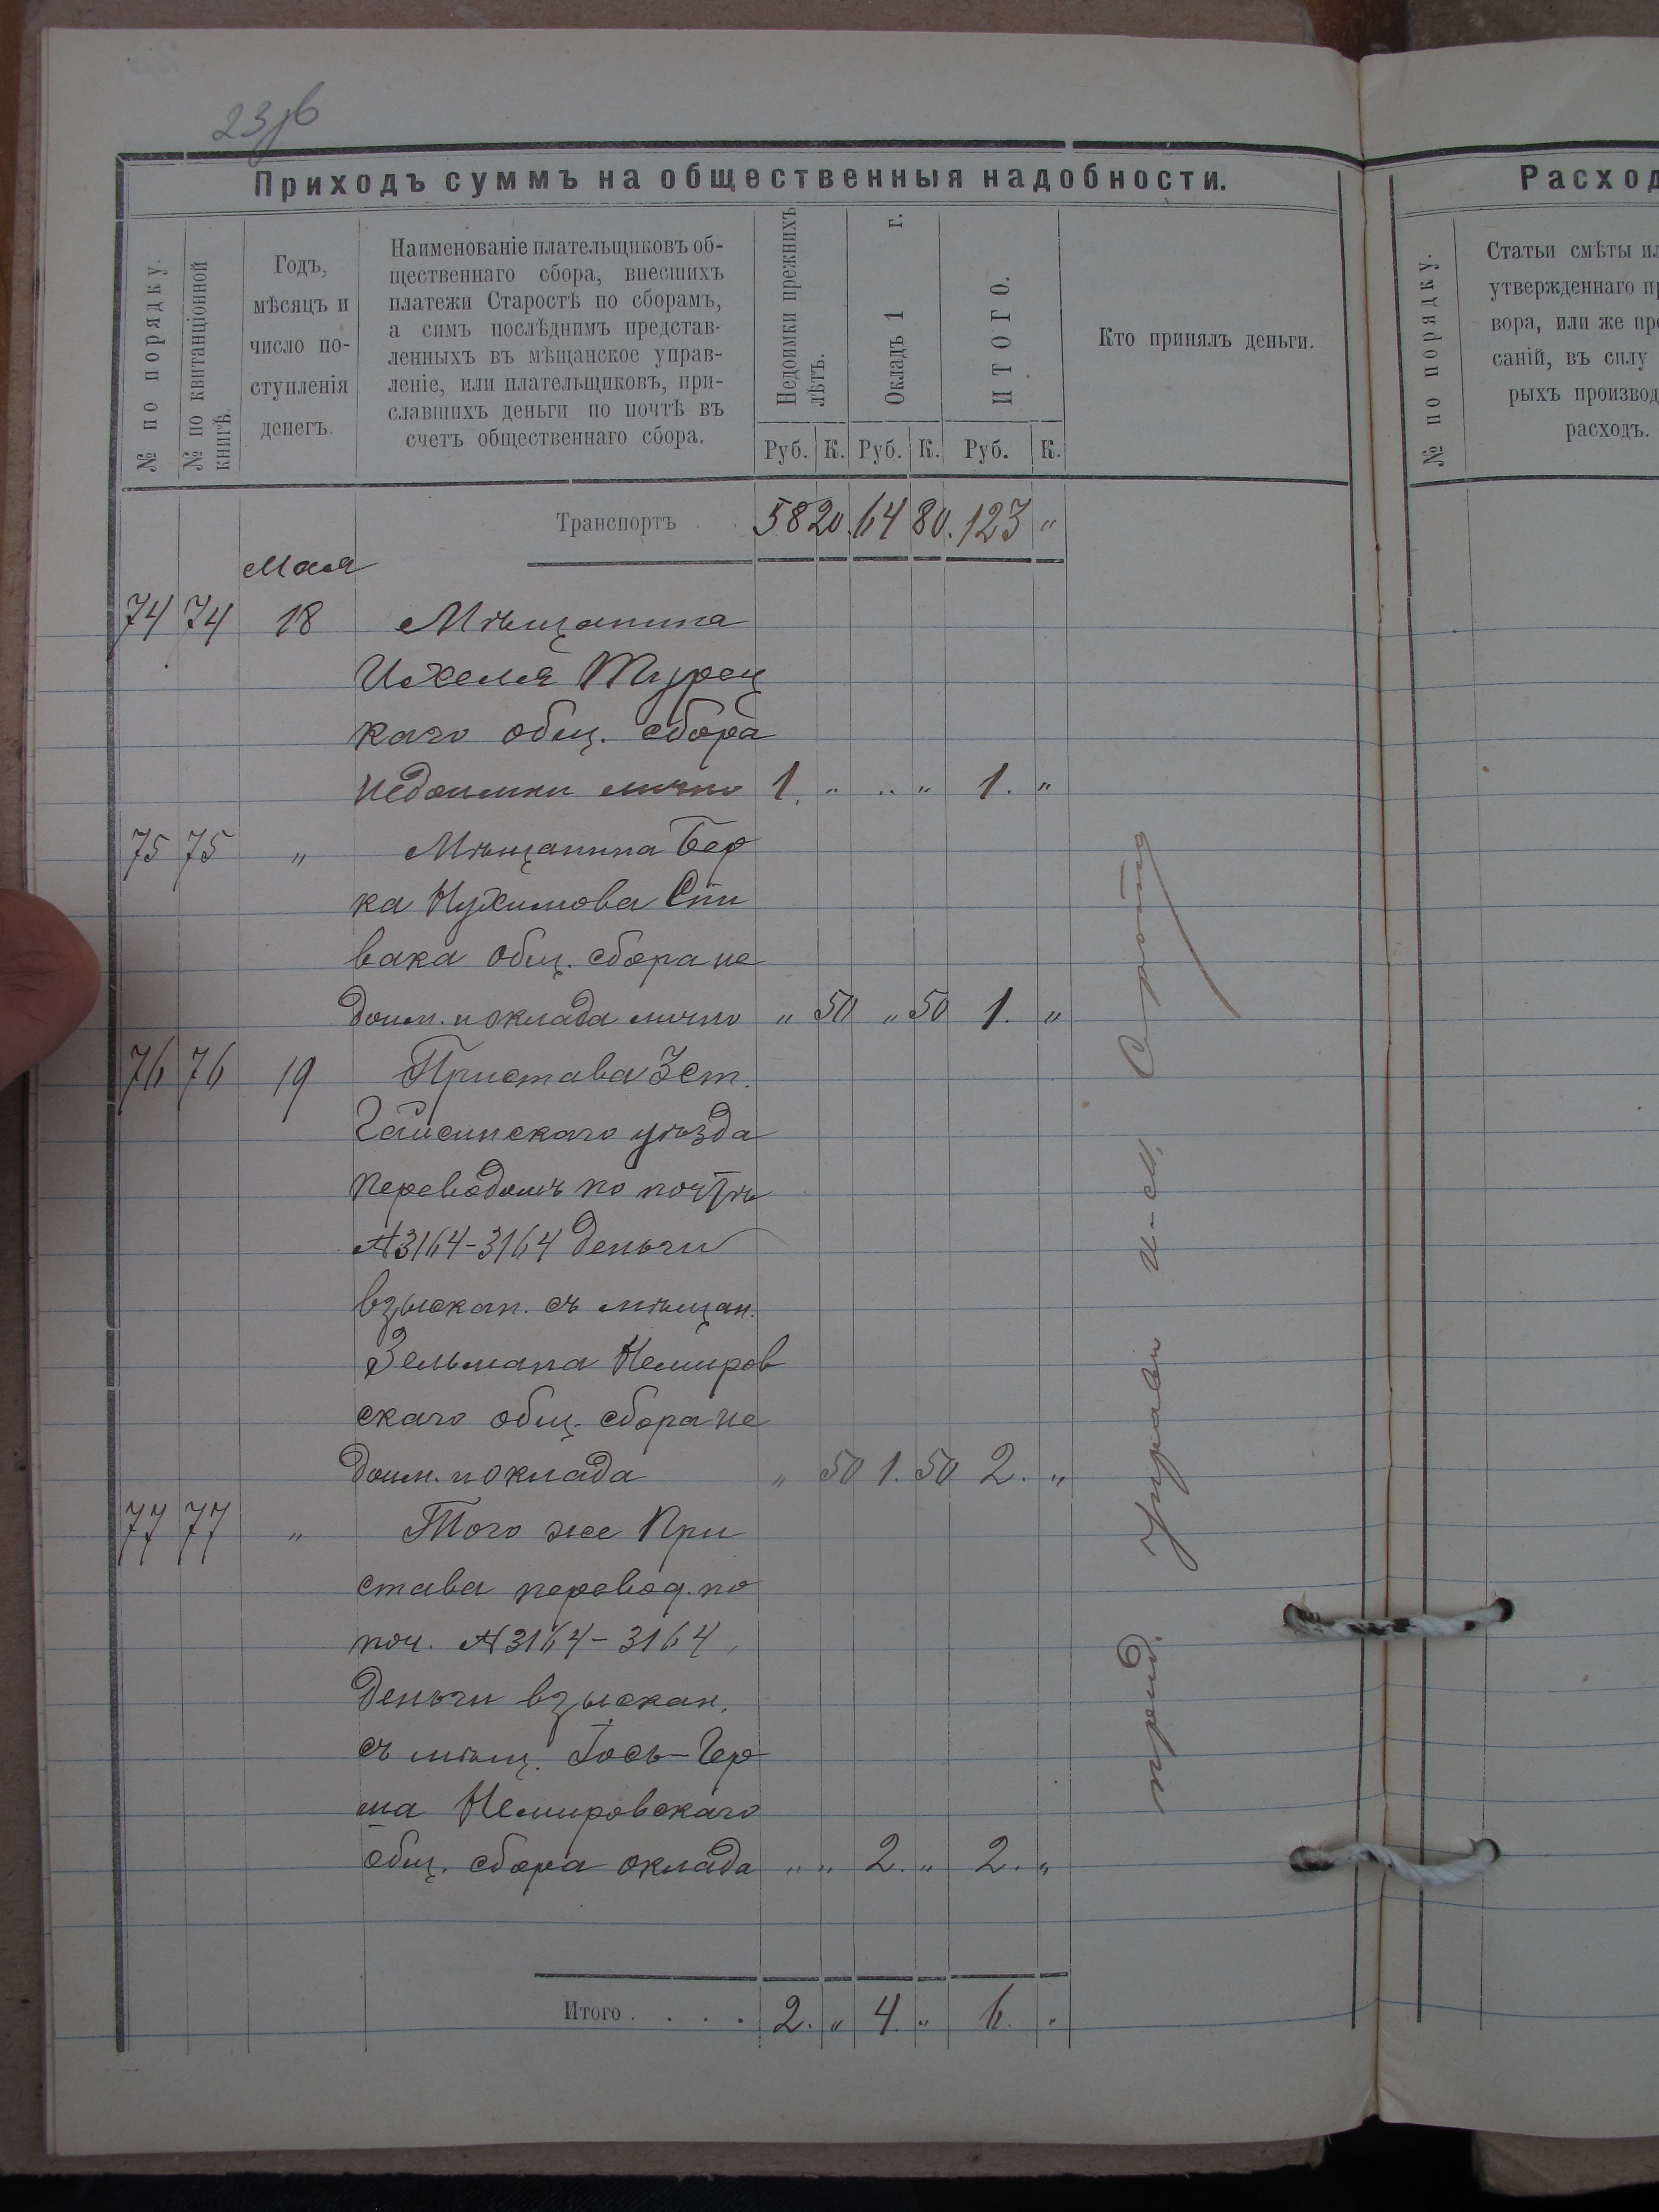 23 об
Приходъ суммъ на общественныя надобности.
№ по порядку.
№ по квитанціонной
книгѣ.
Годъ,
мѣсяцъ и
число по-
ступленія
денегъ.
Наименованіе плательщиковъ об-
щественнаго сбора, внесшихъ
платежи Старостѣ по сборамъ,
а симъ послѣднимъ представ-
ленныхъ въ мѣщанское управ-
леніе, или плательщиковъ, при-
славшихъ деньги по почтѣ въ
счетъ общественнаго сбора.
Недоимки прежнихъ
лѣтъ.
Окладъ 1 г.
ИТОГО.
Кто принялъ деньги.
Руб. К. Руб. К. Руб. К.
Транспортъ 58 20. 64 80. 123 "
Мая
74 74 18 Мѣщанина
Ихеля Турец
каго общ. сбора
недоимки лично 1. " " " 1. "
75 75 " Мѣщанина Бер
ка Нухимова Спи
вака общ. сбора не
доим. и оклада лично " 50 " 50 1. "
76 76 19 Пристава 3 ст.
Гайсинскаго уѣзда
переводомъ по почтѣ
№ 3164-3164 деньги
взыскан. съ мѣщан.
Зельмана Немиров
скаго общ. сбора не
доим. и оклада " 50 1. 50 2. "
77 77 " Того же При
става перевод. по
поч. № 3164-3164,
деньги взыскан.
съ мѣщ. Іось-Гер
ша Немировскаго
общ. сбора оклада " " 2. " 2. "
Итого . . . . 2. " 4. " 6. "
Управы
Расход
№ по порядку.
Статьи смѣты ил
утвержденнаго пр
вора, или же пре
саній, въ силу
рыхъ производ
расходъ.